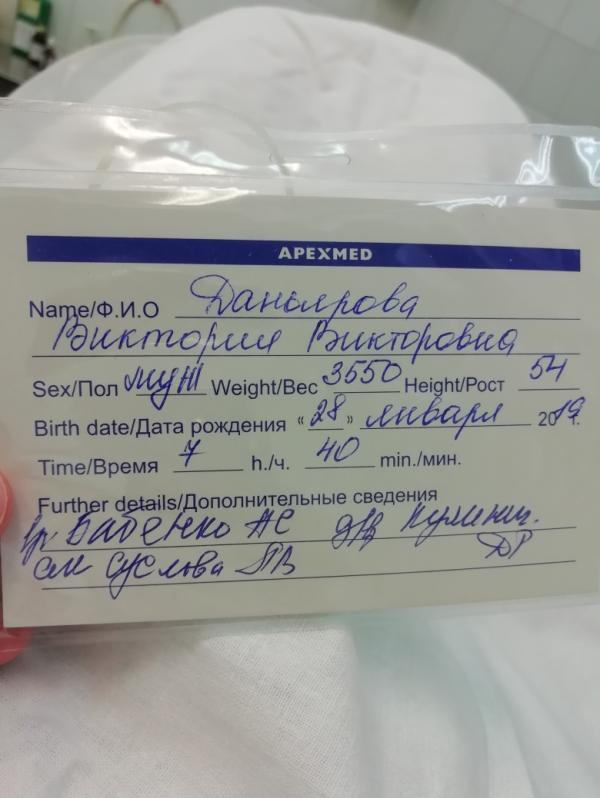 APEXMED
Name/Ф.И.О Даньярова
Виктория Викторовна
Sex/Пол муж Weight/Вес 3550 Height/Рост 54
Birth date/Дата рождения «28» января 2019г.
Time/Время 7 h./ч. 40 min./мин.
Further details/Дополнительные сведения
вр. Бабенко АС
см Суслова ТВ ДР